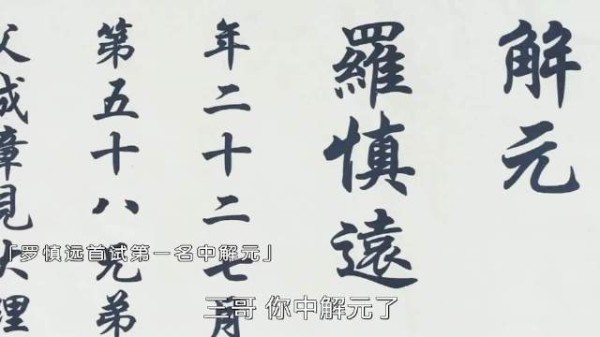 解元
羅慎遠
年二十二七月
第五十八兄弟
父成章見大理
「罗慎远首试第一名中解元」
三哥 你中解元了